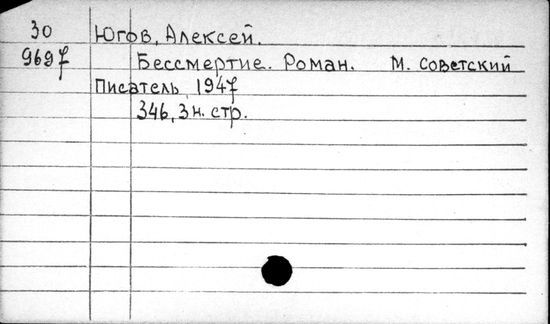 30 Югов, Алексей.
9697 Бессмертие. Роман. М. Советский
Писатель 1947
346, 3 н. стр.